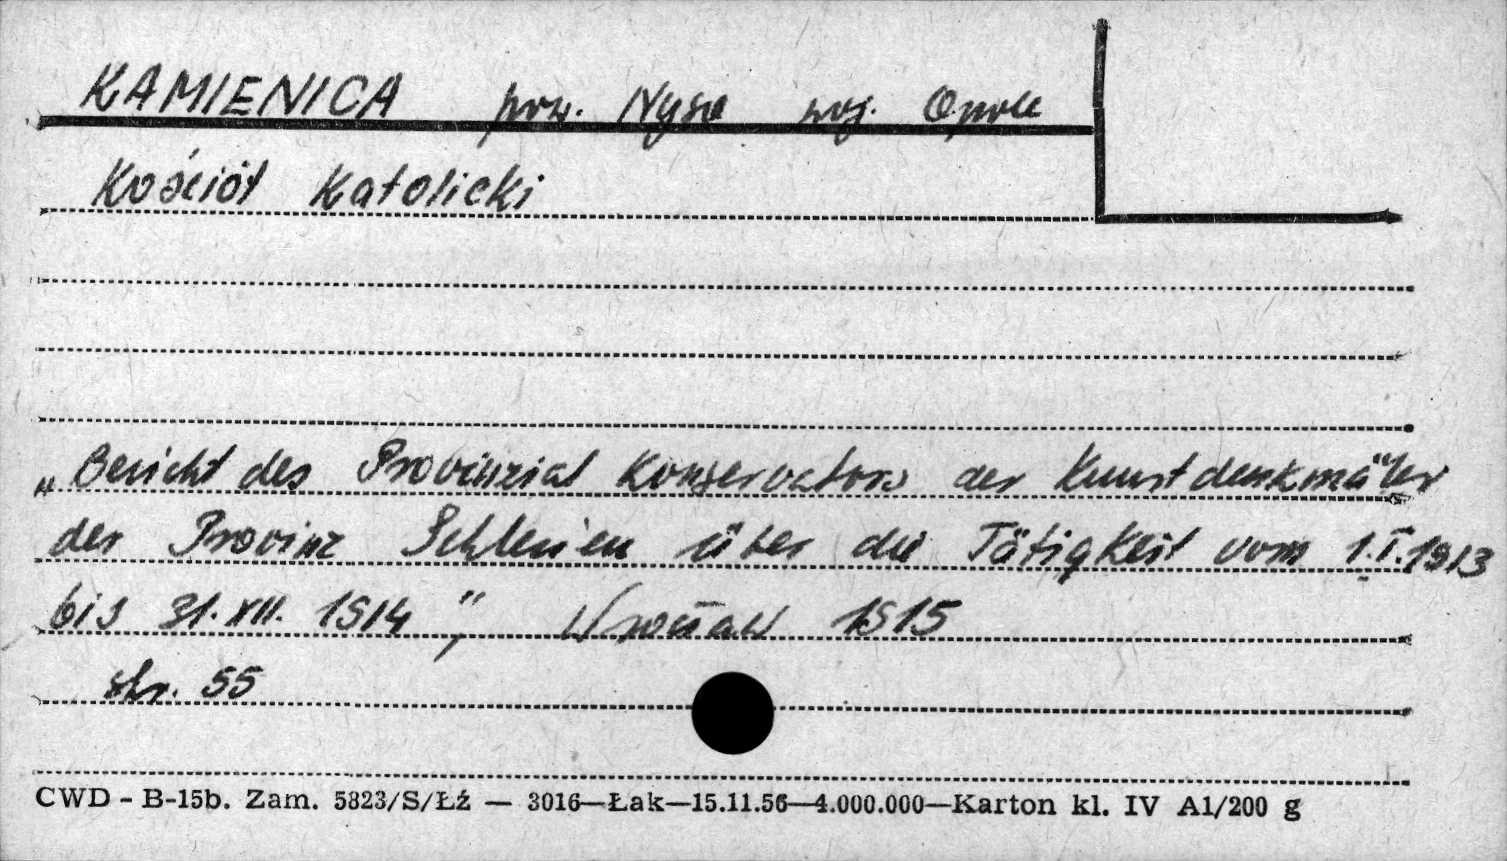 KAMIENICA pow. Nysa woj. Opole
Kościół Katolicki
„Bericht des Provinzial Konservators der Kunstdenkmäler
der Provinz Schlesien über die Tätigkeit vom 1.I.1913
bis 31.XII.1914", Wrocław 1915
str. 55
CWD - B-15b. Zam. 5823/S/Łź — 3016—Łak—15.11.56—4.000.000—Karton kl. IV A1/200 g